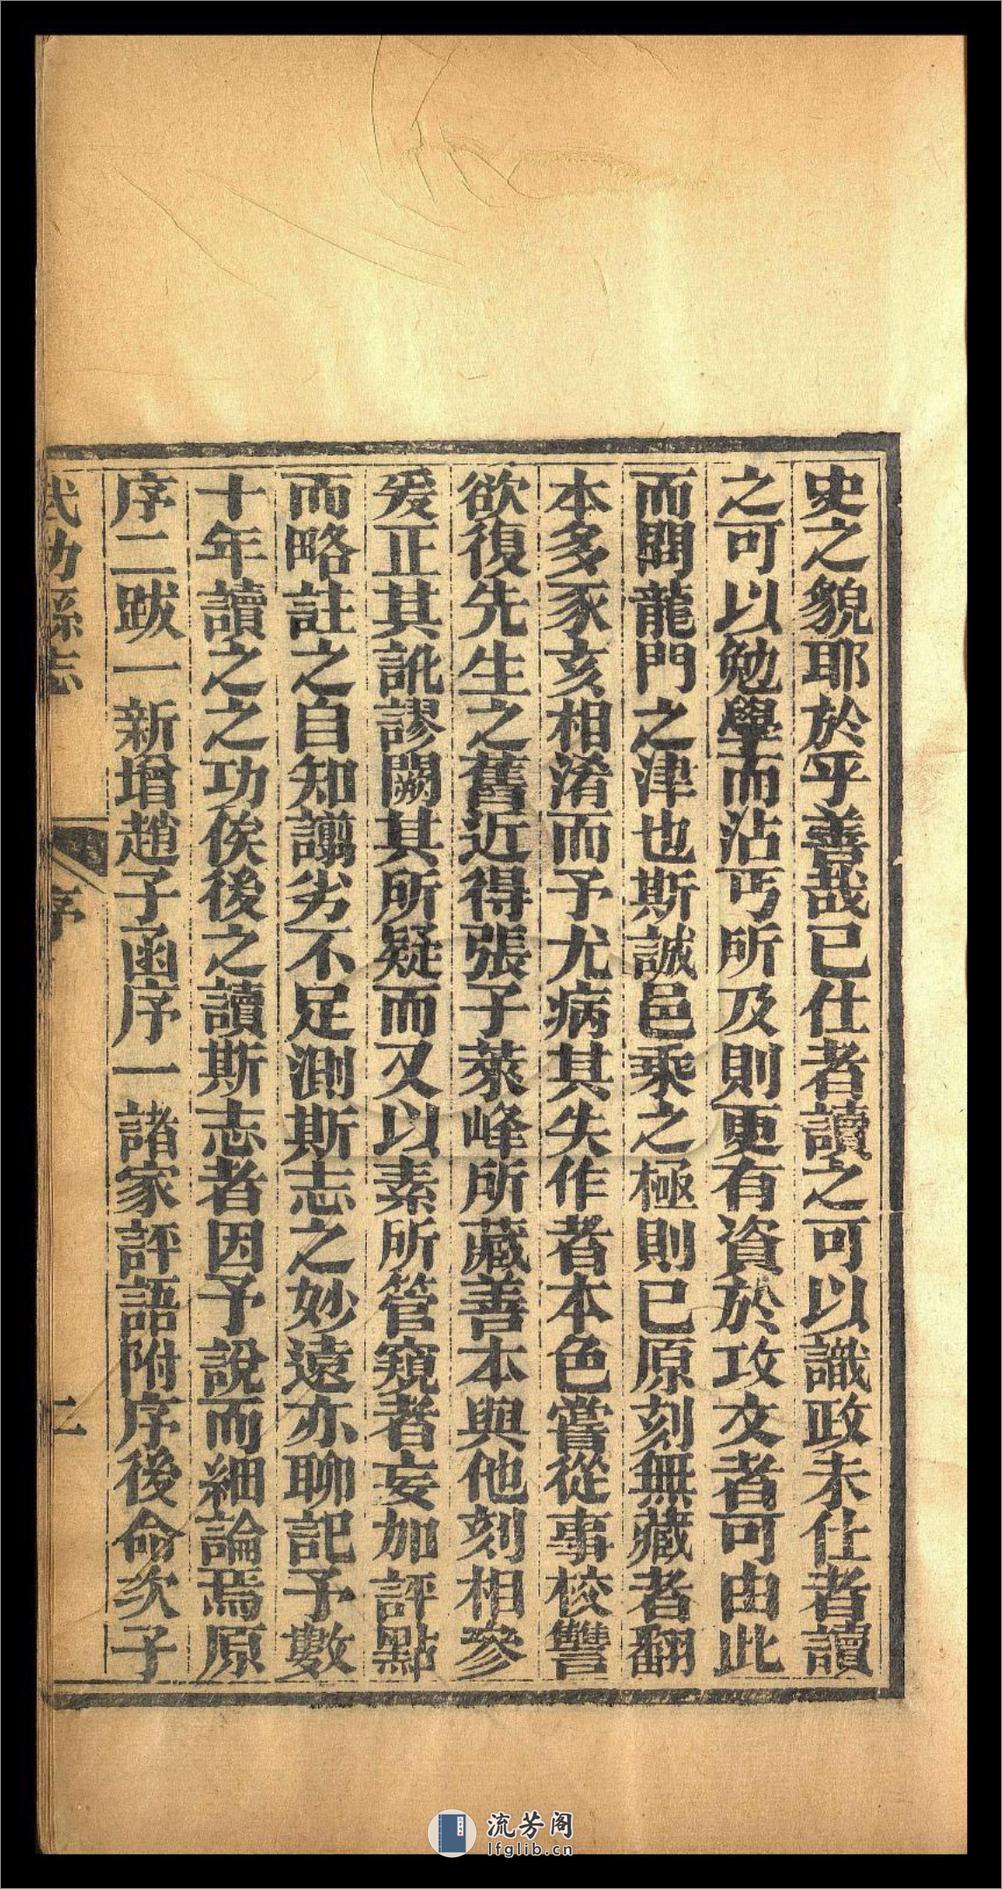 史之貌耶於乎善哉已仕者讀之可以識政未仕者讀
之可以勉學而沾丐所及則更有資於攻文者可由此
而問龍門之津也斯誠邑乘之極則已原刻無藏者翻
本多豕亥相淆而予尤病其失作者本色嘗從事校讐
欲復先生之舊近得張子萊峰所藏善本與他刻相參
爰正其訛謬闕其所疑而又以素所管窺者妄加評點
而略註之自知譾劣不足測斯志之妙遠亦聊記予數
十年讀之之功俟後之讀斯志者因予說而細論焉原
序二跋一新增趙子函序一諸家評語附序後命次子
武功縣志 序 二
流芳阁
lfglib.cn